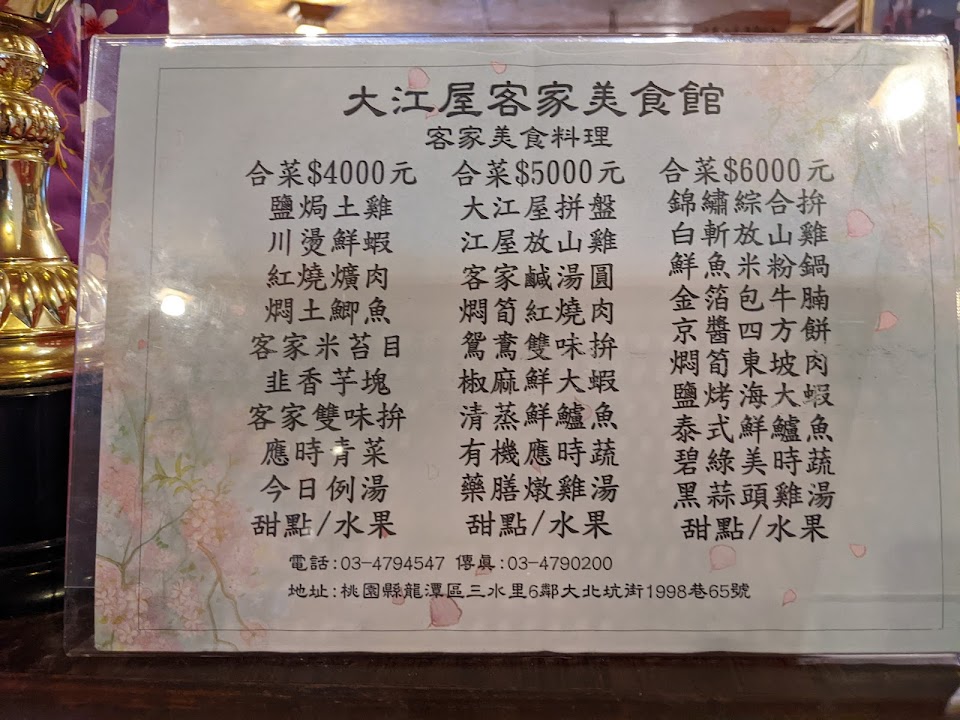 大江屋客家美食館
客家美食料理
合菜$4000元
鹽焗土雞
川燙鮮蝦
紅燒爌肉
燜土鯽魚
客家米苔目
韭香芋塊
客家雙味拚
應時青菜
今日例湯
甜點/水果
合菜$5000元
大江屋拼盤
江屋放山雞
客家鹹湯圓
燜筍紅燒肉
鴛鴦雙味拚
椒麻鮮大蝦
清蒸鮮鱸魚
有機應時蔬
藥膳燉雞湯
甜點/水果
合菜$6000元
錦繡綜合拚
白斬放山雞
鮮魚米粉鍋
金箔包牛腩
京醬四方餅
燜筍東坡肉
鹽烤海大蝦
泰式鮮鱸魚
碧綠美時蔬
黑蒜頭雞湯
甜點/水果
電話:03-4794547 傳真:03-4790200
地址:桃園縣龍潭區三水里6鄰大北坑街1998巷65號